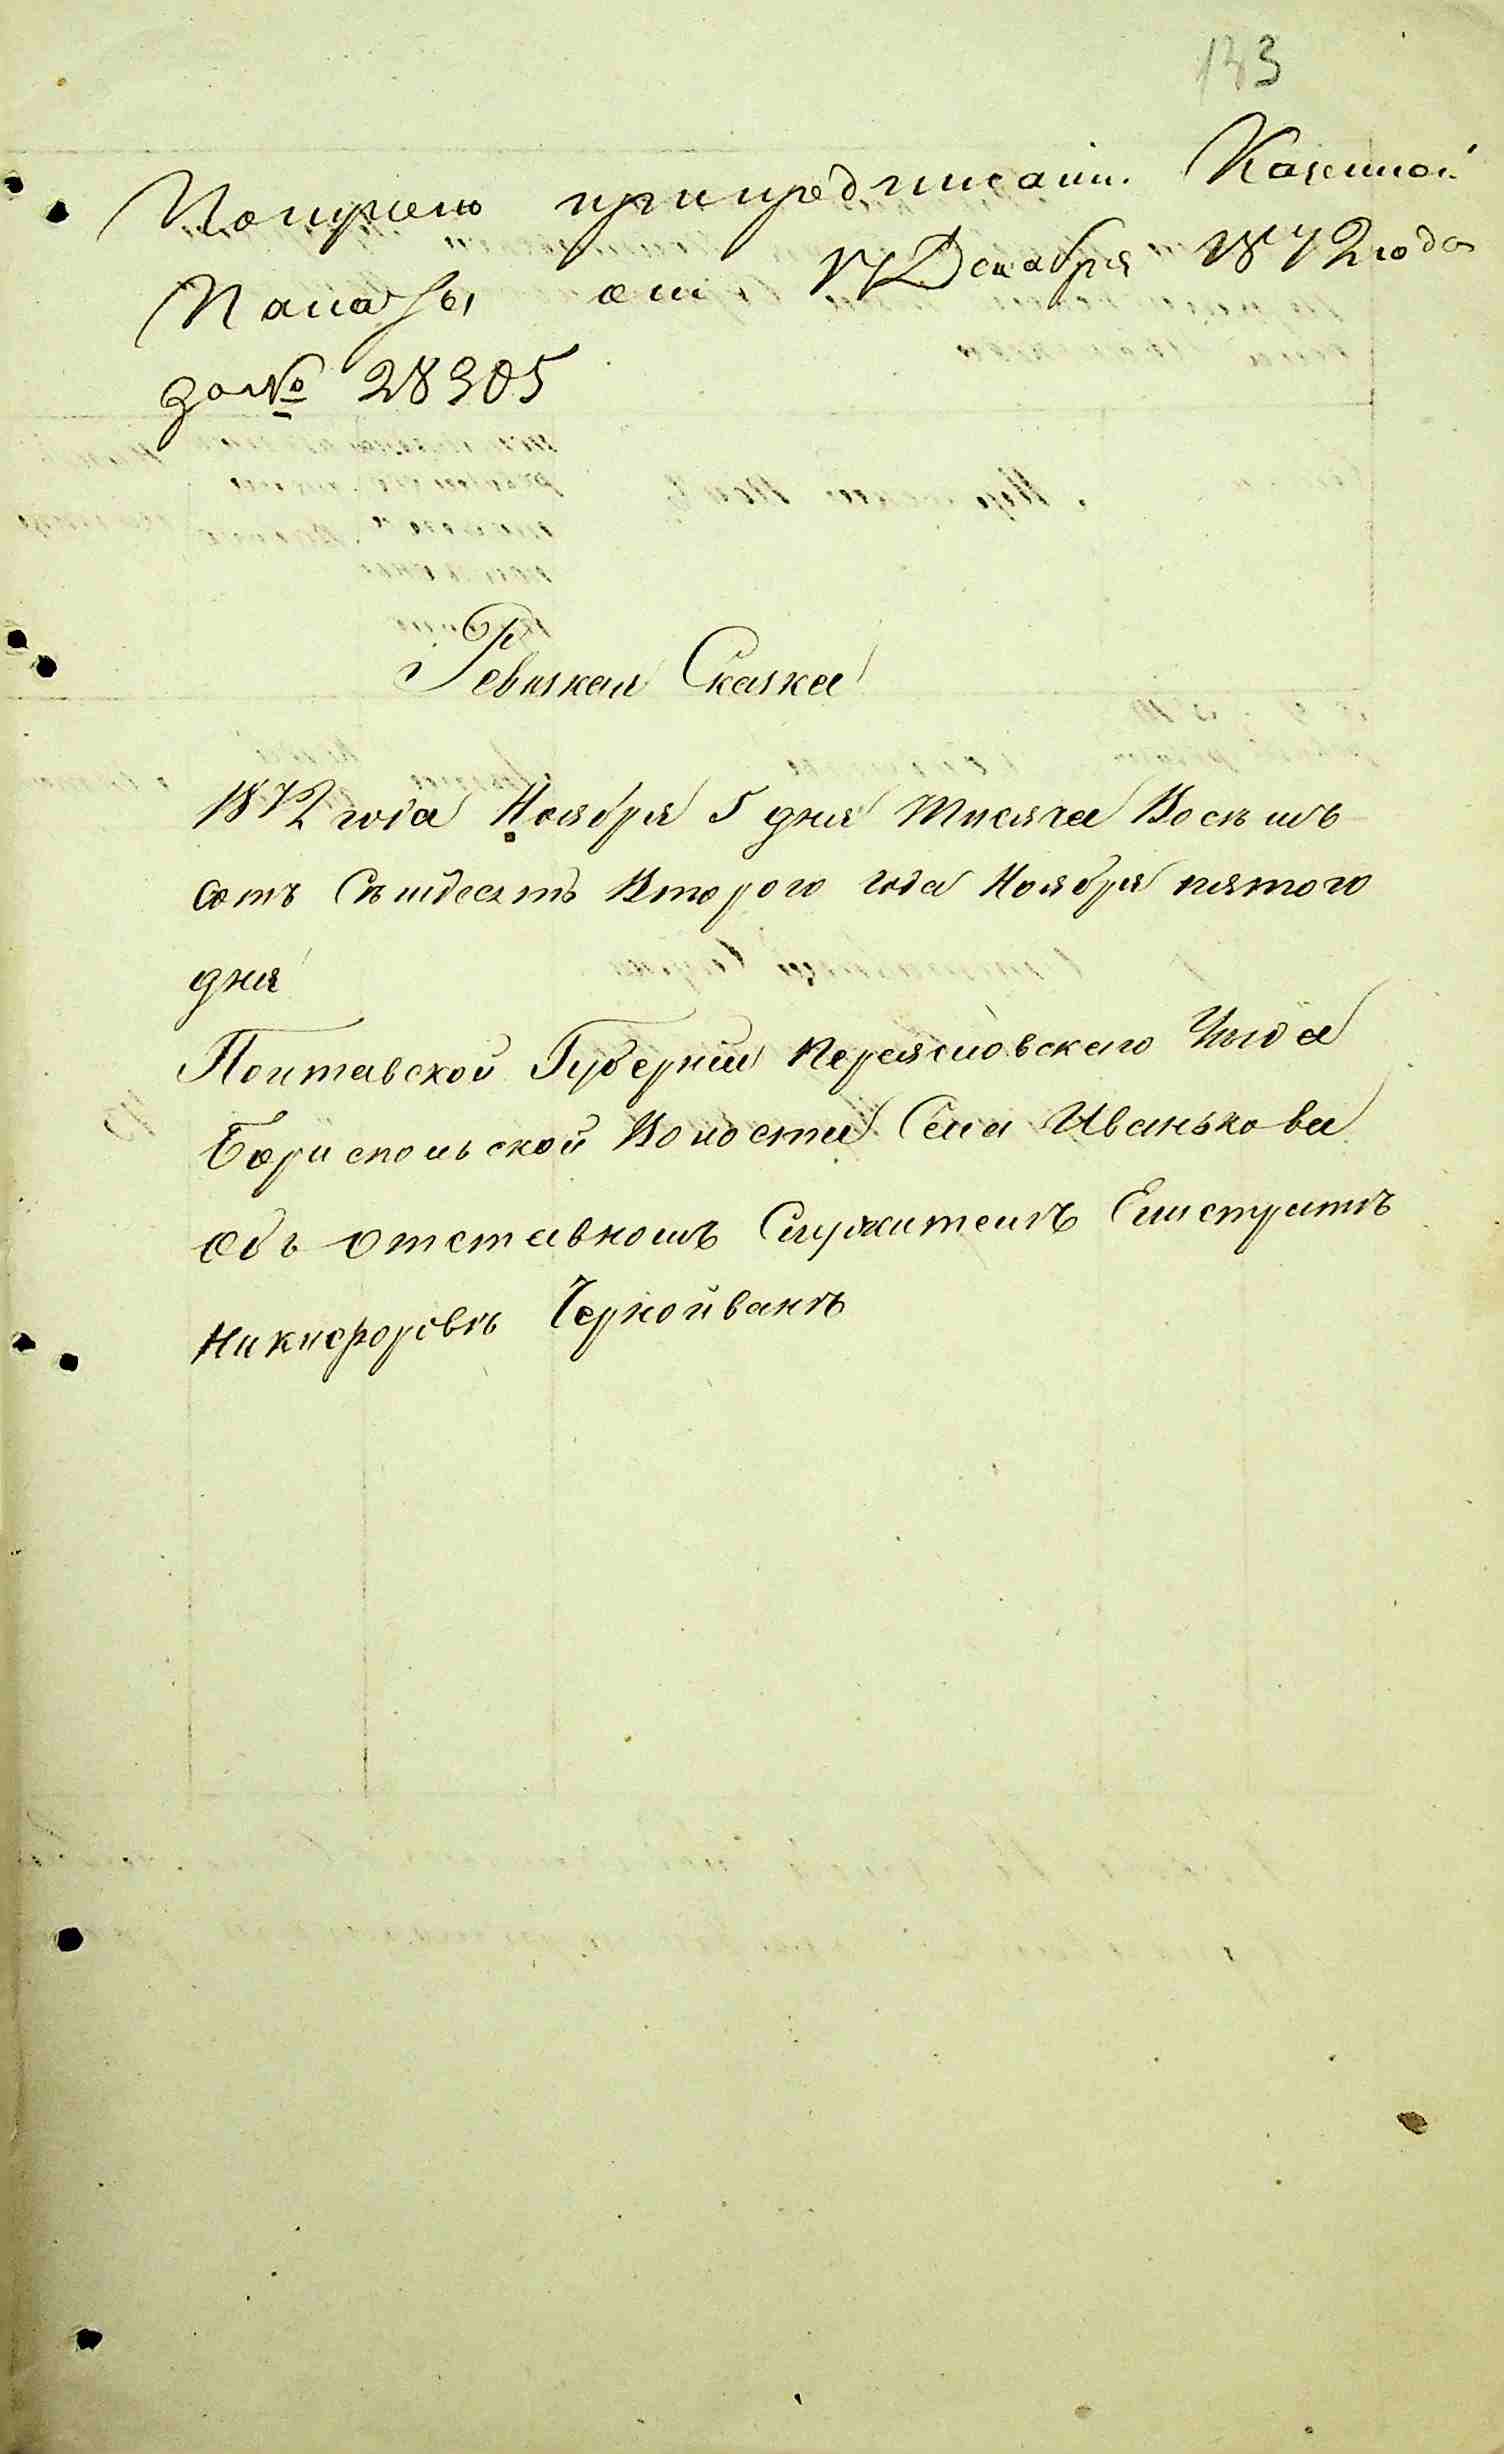 133
Получено при предписании Казенной
Палаты от 17 Декабря 1872 года
за № 28305
Ревизкая Сказка
1872 года Ноября 5 дня Тисяча Восѣмъ
сотъ Сѣмдесятъ Второго года Ноября пятого
дня
Полтавской Губерніи Переясловскаго Уѣзда
Бориспольской Волости Села Иванькова
Объ отставномъ Служителѣ Елистратѣ
Никифоровѣ Чернойванѣ